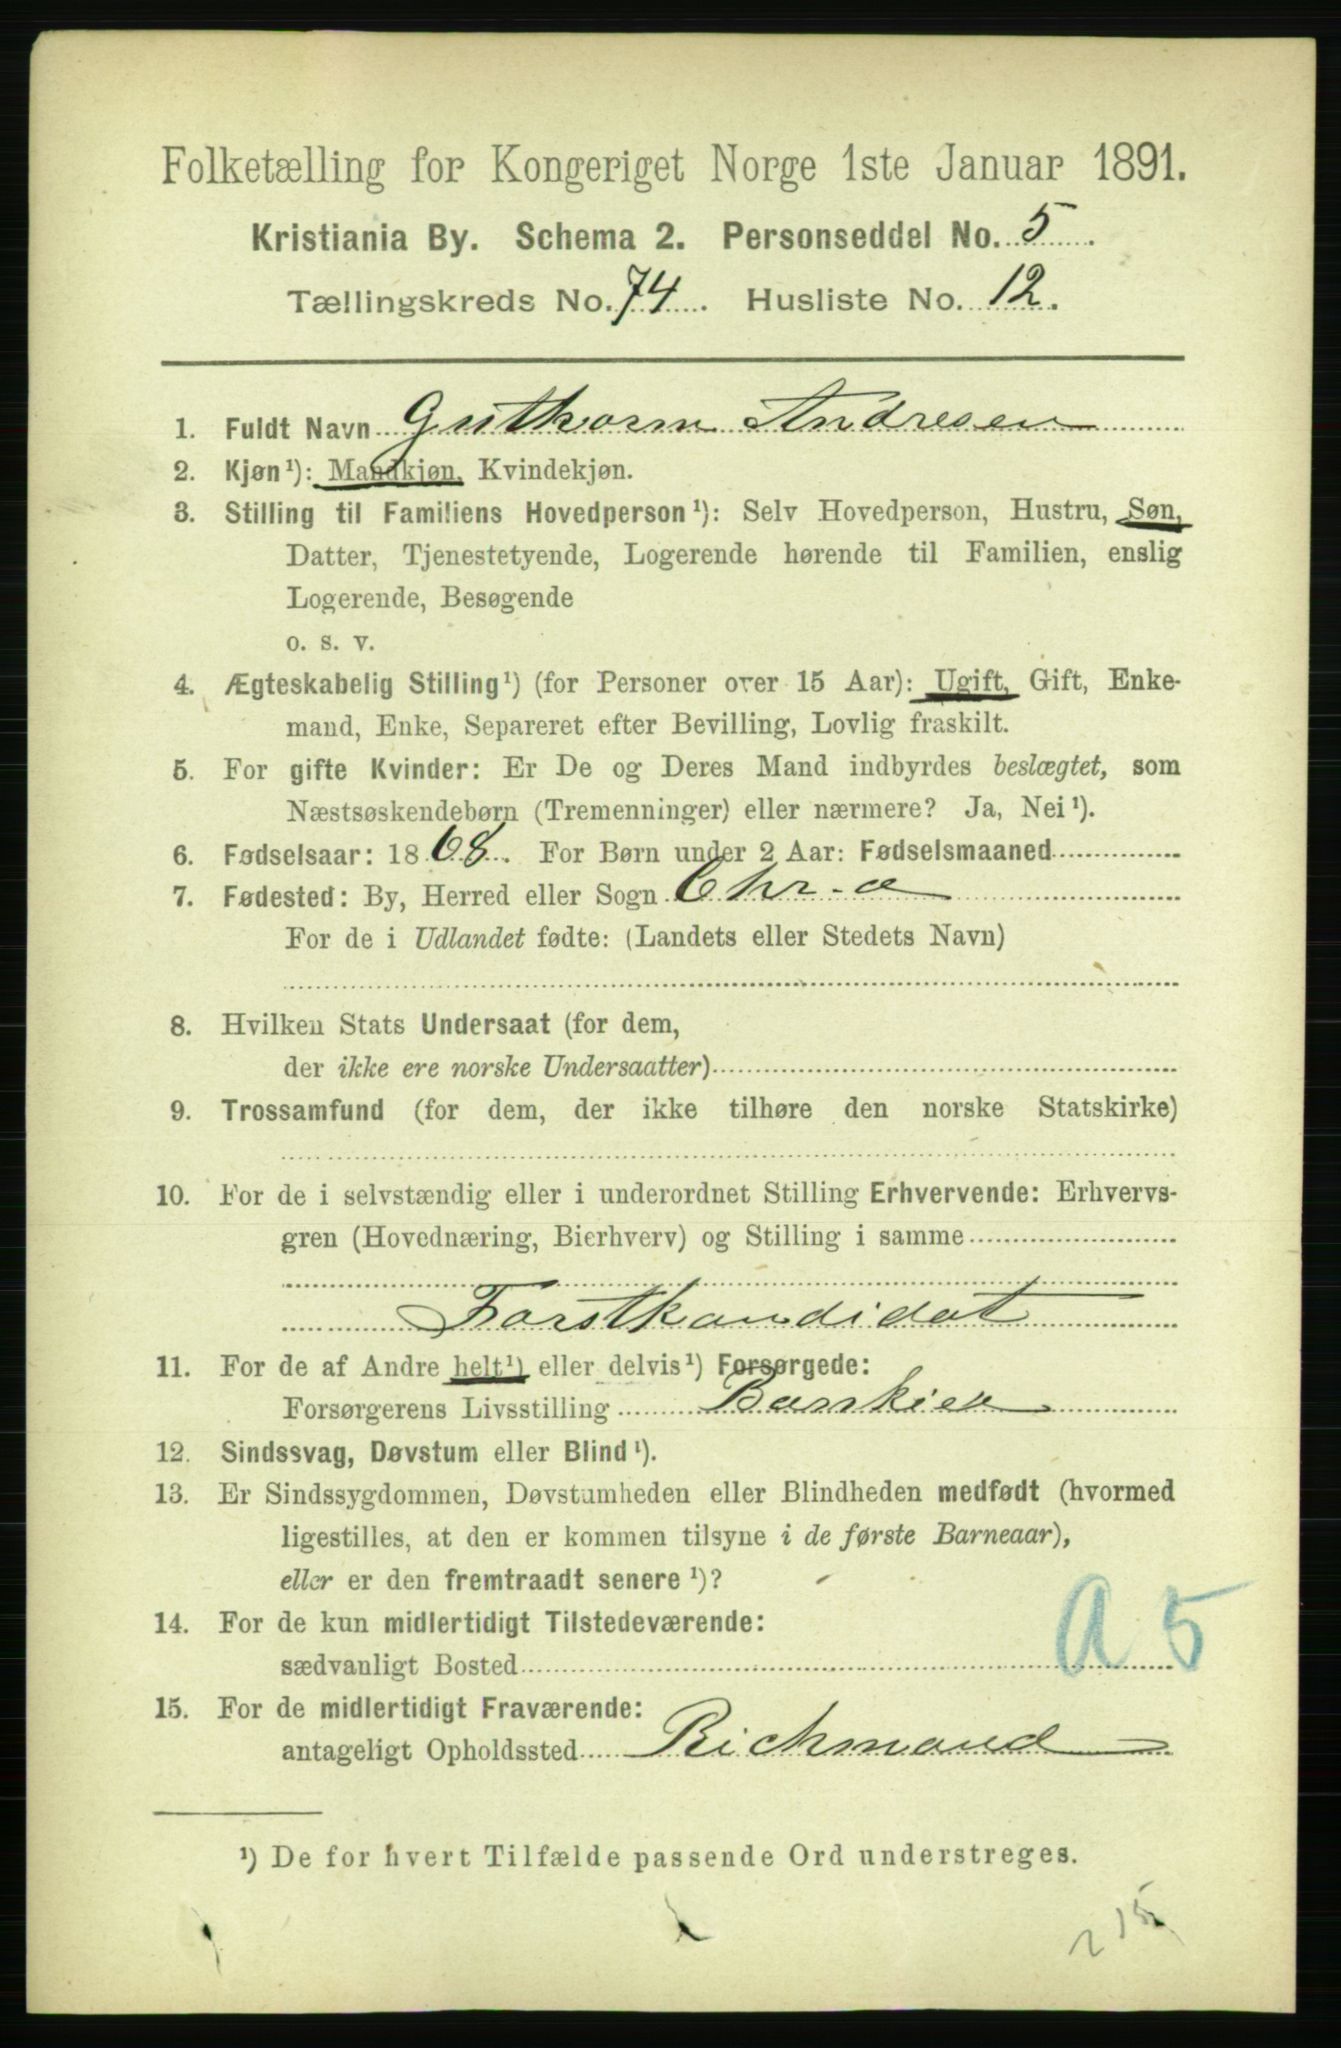 Folketælling for Kongeriget Norge 1ste Januar 1891.
Kristiania By. Schema 2. Personseddel No. 5
Tællingskreds No. 74. Husliste No. 12.
1. Fuldt Navn Guthorm Andresen
2. Kjøn¹): Mandkjøn, Kvindekjøn.
3. Stilling til Familiens Hovedperson¹): Selv Hovedperson, Hustru, Søn,
Datter, Tjenestetyende, Logerende hørende til Familien, enslig
Logerende, Besøgende
o. s. v.
4. Ægteskabelig Stilling¹) (for Personer over 15 Aar): Ugift, Gift, Enke-
mand, Enke, Separeret efter Bevilling, Lovlig fraskilt.
5. For gifte Kvinder: Er De og Deres Mand indbyrdes beslægtet, som
Næstsøskendebørn (Tremenninger) eller nærmere? Ja, Nei¹).
6. Fødselsaar: 1868. For Børn under 2 Aar: Fødselsmaaned
7. Fødested: By, Herred eller Sogn Chr.a
For de i Udlandet fødte: (Landets eller Stedets Navn)
8. Hvilken Stats Undersaat (for dem,
der ikke ere norske Undersaatter)
9. Trossamfund (for dem, der ikke tilhøre den norske Statskirke)
10. For de i selvstændig eller i underordnet Stilling Erhvervende: Erhvervs-
gren (Hovednæring, Bierhverv) og Stilling i samme
Forstkandidat
11. For de af Andre helt¹) eller delvis¹) Forsørgede:
Forsørgerens Livsstilling Bankier
12. Sindssvag, Døvstum eller Blind¹).
13. Er Sindssygdommen, Døvstumheden eller Blindheden medfødt (hvormed
ligestilles, at den er kommen tilsyne i de første Barneaar),
eller er den fremtraadt senere¹)?
14. For de kun midlertidigt Tilstedeværende:
sædvanligt Bosted
A 5
15. For de midlertidigt Fraværende:
antageligt Opholdssted Richmond
¹) De for hvert Tilfælde passende Ord understreges.
215